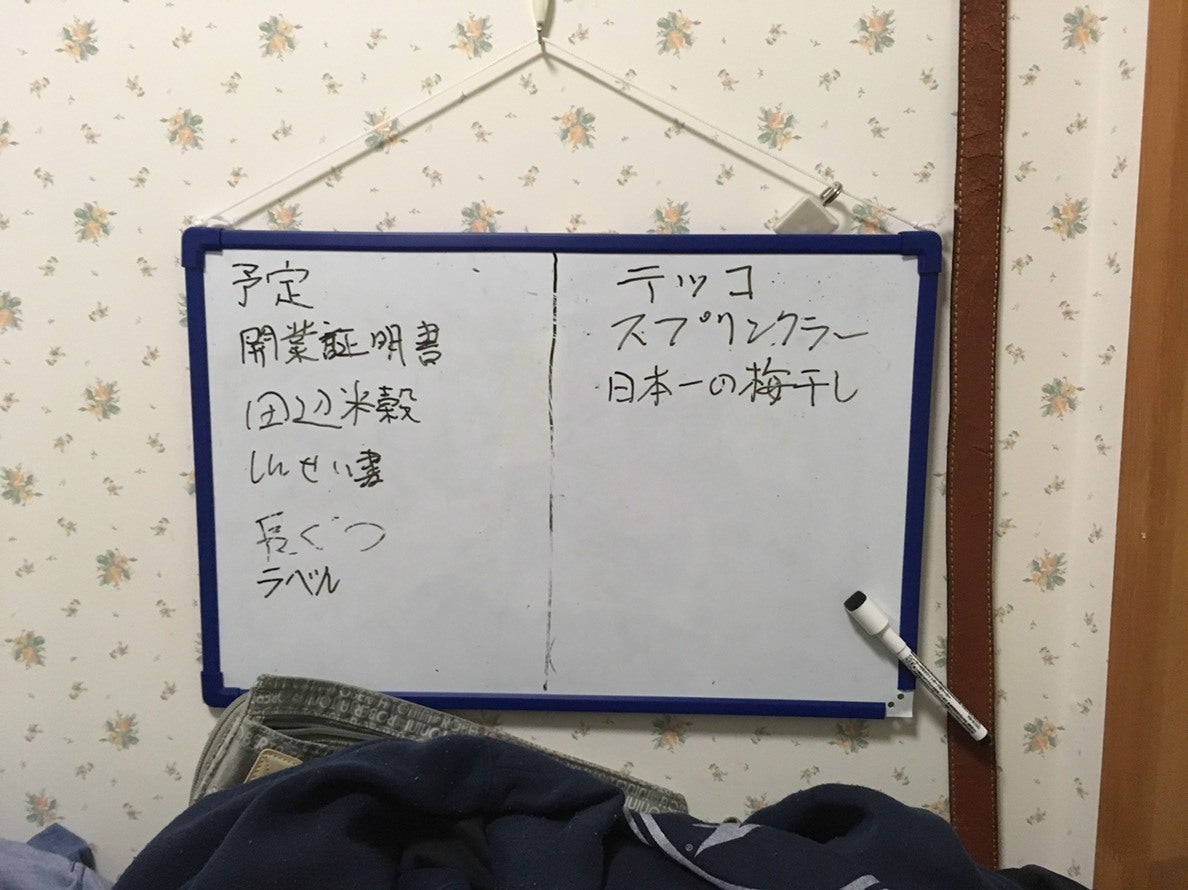 予定
開業証明書
田辺米穀
しんせい書
長ぐつ
ラベル
テッコ
スプリンクラー
日本一の梅干し